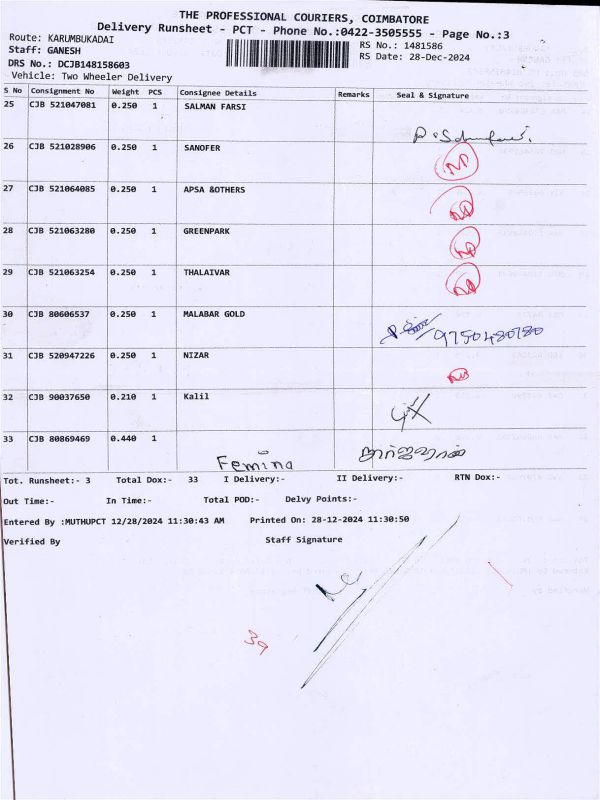 THE PROFESSIONAL COURIERS, COIMBATORE
Delivery Runsheet - PCT - Phone No.:0422-3505555 - Page No.:3
Route: KARUMBUKADAI
Staff: GANESH
RS No.: 1481586
DRS No.: DCJB148158603
RS Date: 28-Dec-2024
Vehicle: Two Wheeler Delivery
S No Consignment No Weight PCS Consignee Details Remarks Seal & Signature
25 CJB 521047081 0.250 1 SALMAN FARSI
26 CJB 521028906 0.250 1 SANOFER
27 CJB 521064085 0.250 1 APSA &OTHERS
28 CJB 521063280 0.250 1 GREENPARK
29 CJB 521063254 0.250 1 THALAIVAR
30 CJB 80606537 0.250 1 MALABAR GOLD
9750480780
31 CJB 520947226 0.250 1 NIZAR
32 CJB 90037650 0.210 1 Kalil
33 CJB 80869469 0.440 1
Femina
Tot. Runsheet:- 3 Total Dox:- 33 I Delivery:- II Delivery:- RTN Dox:-
Out Time:- In Time:- Total POD:- Delvy Points:-
Entered By :MUTHUPCT 12/28/2024 11:30:43 AM Printed On: 28-12-2024 11:30:50
Verified By Staff Signature
39